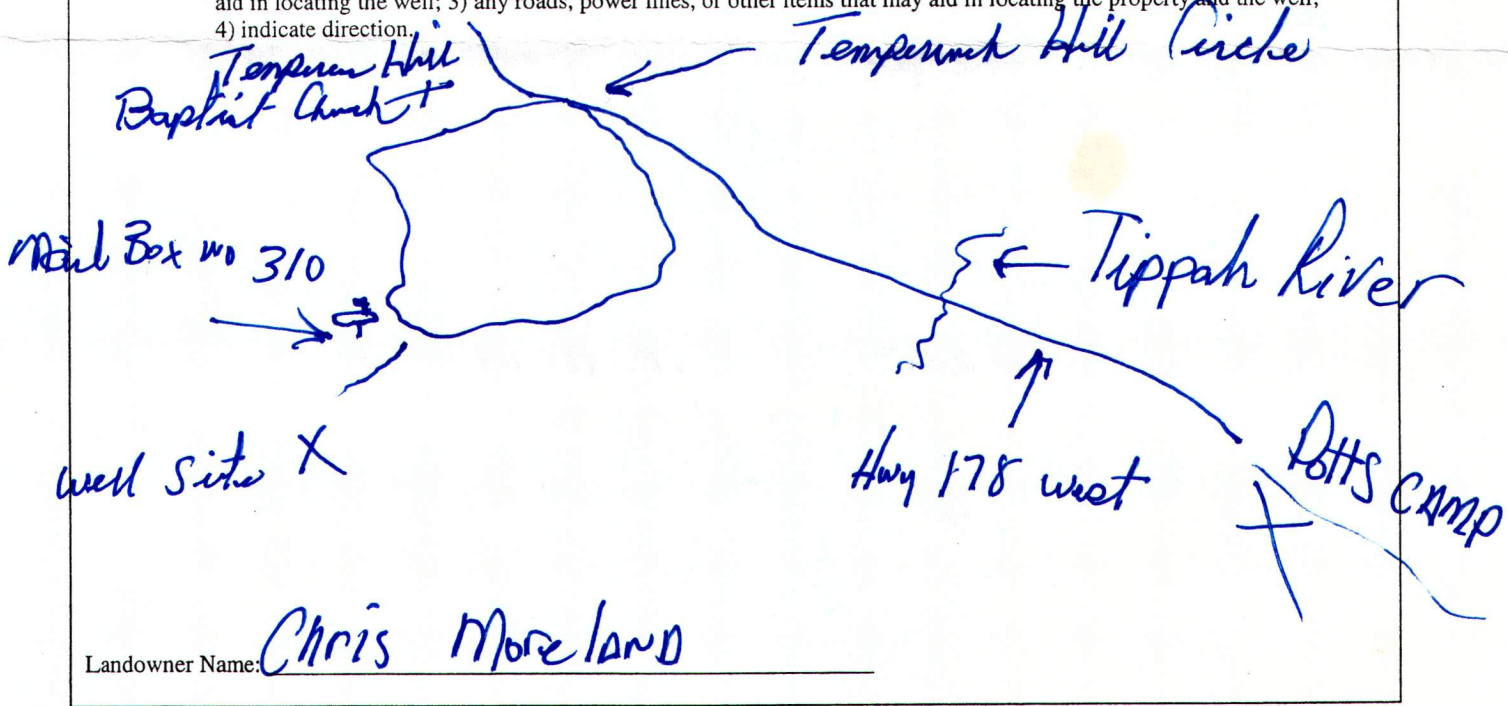 aid in locating the well; 3) any roads, power lines, or other items that may aid in locating the property and the well;
4) indicate direction.
Hill Circle
Hill
Baptist Church
Tippah River
Mail Box no 310
Well Site X
Hwy 178 west
Potts CAMP
Landowner Name: Chris Moreland